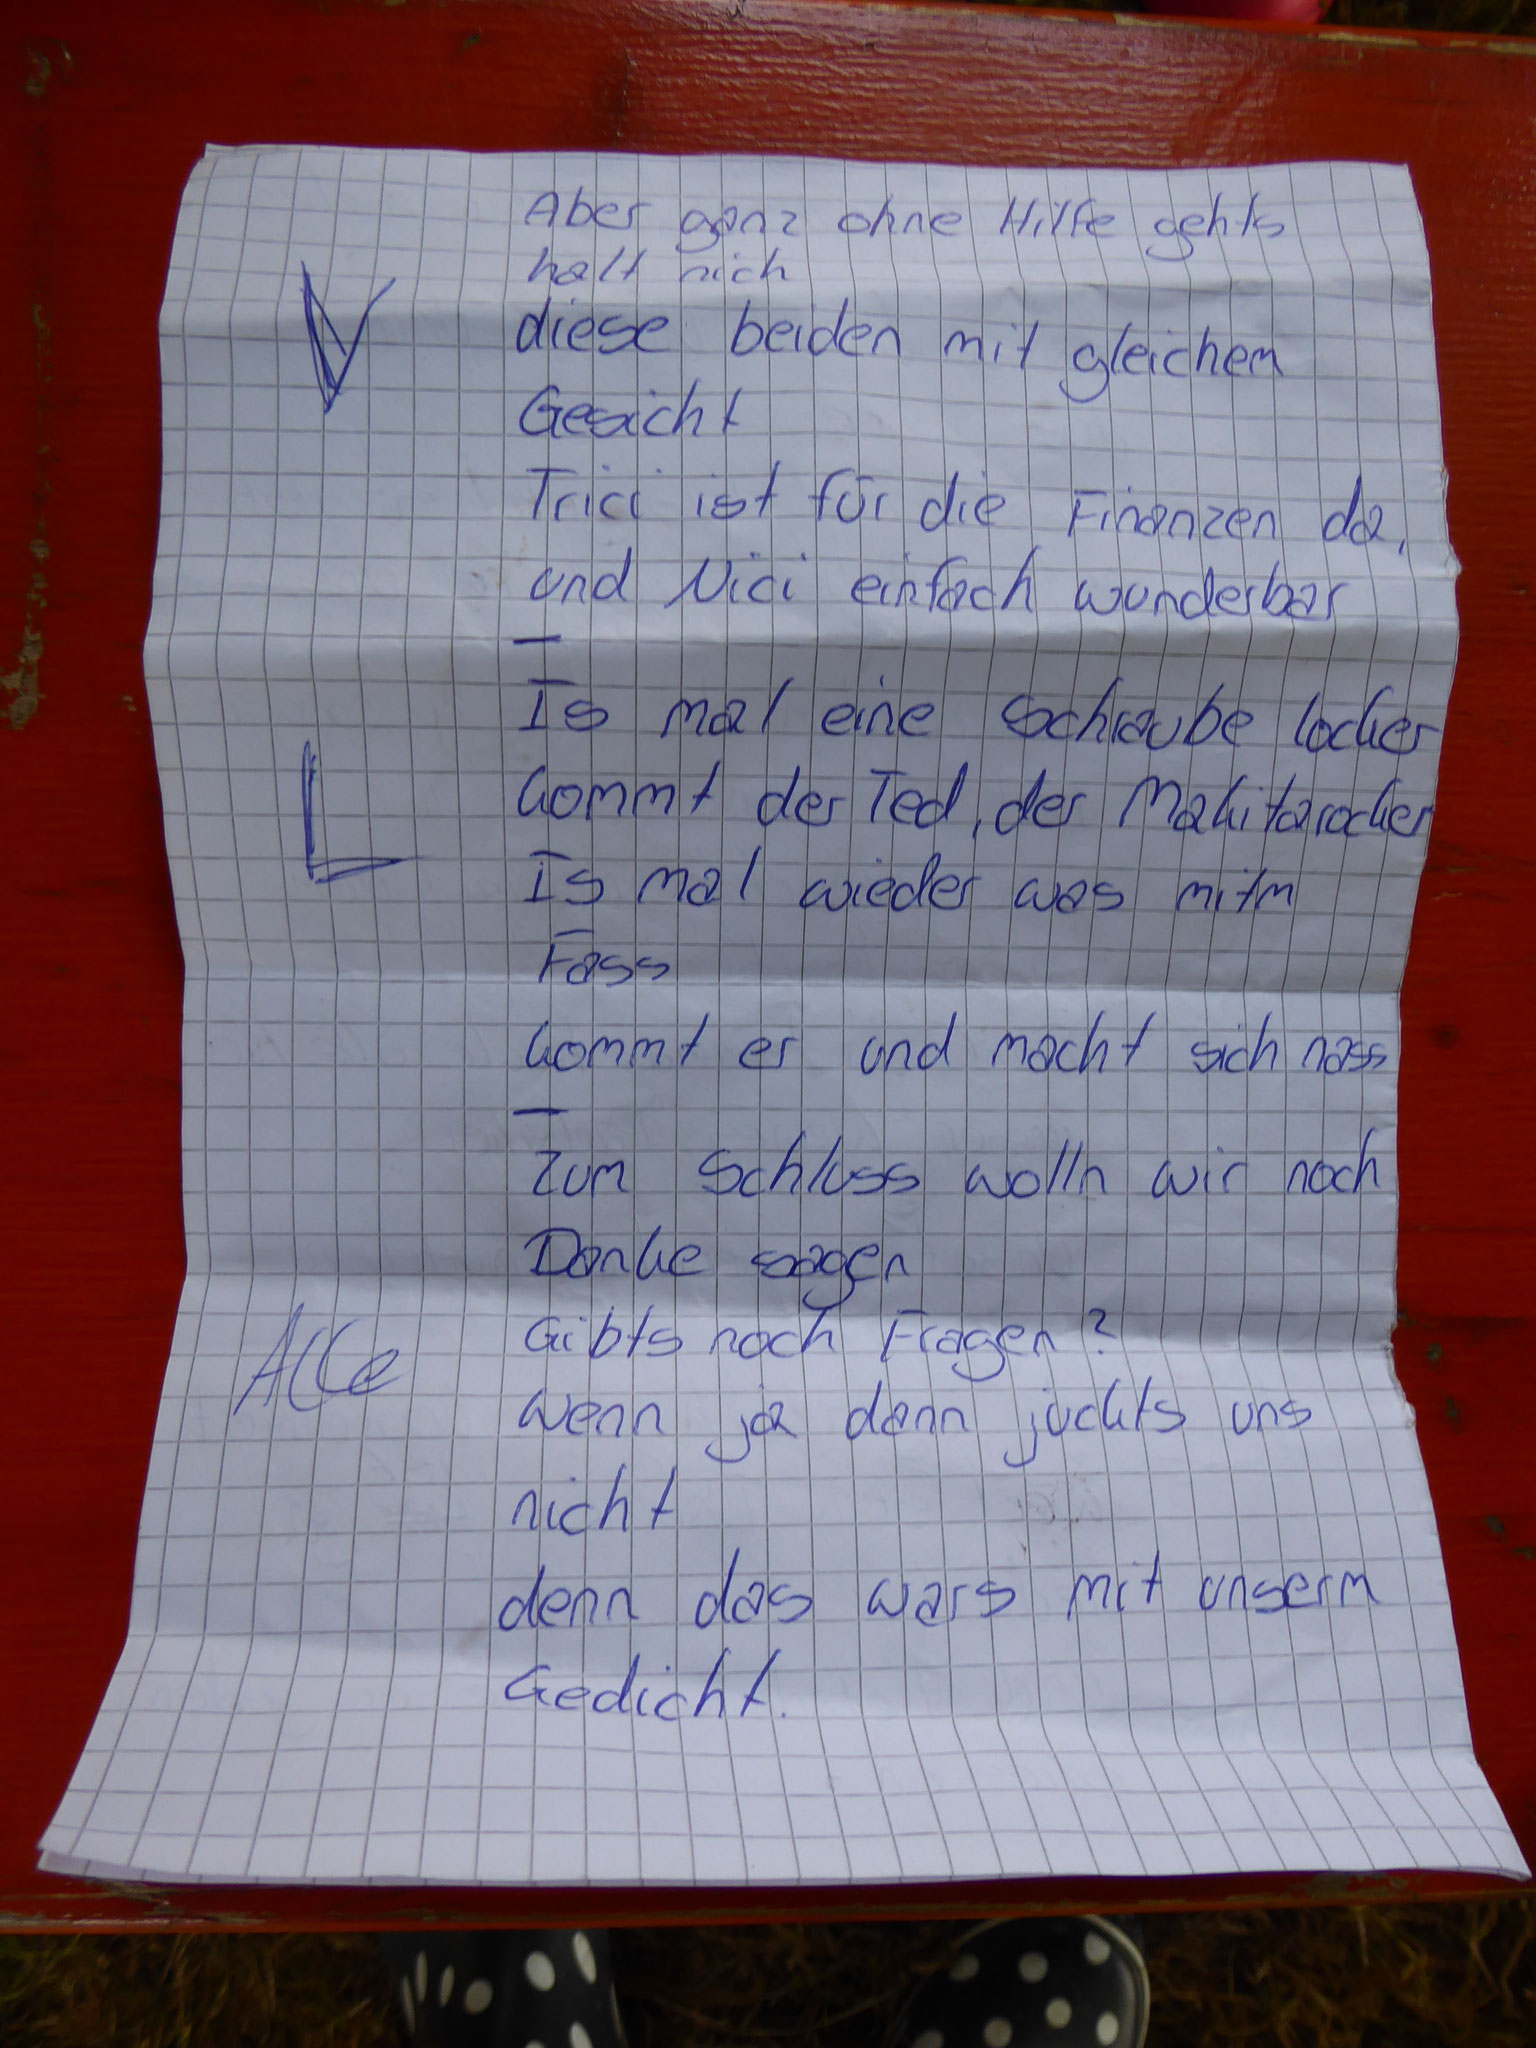 Aber ganz ohne Hilfe gehts
halt nich
V diese beiden mit gleichem
Gesicht
Trici ist für die Finanzen da,
und Nici einfach wunderbar
—
Is mal eine schraube locker
L kommt der Ted, der Makitarocker
Is mal wieder was mitm
Fass
kommt er und macht sich nass
—
Zum Schluss wolln wir noch
Danke sagen
Alle Gibts noch Fragen?
wenn ja dann juckts uns
nicht
denn das wars mit unserm
Gedicht.